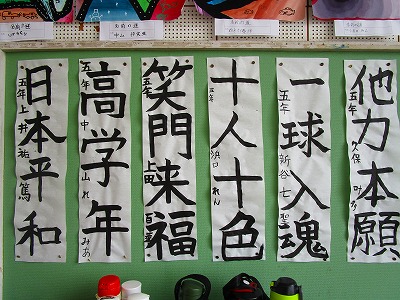 他力本願
五年 久保
一球入魂
五年 新谷 七聖
十人十色
五年 浜口 れん
笑門来福
五年 上田
高学年
五年 中山 れみあ
日本平和
五年 上井 祐篤